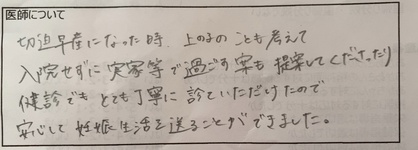 医師について
切迫早産になった時、上の子のことも考えて
入院せずに実家等で過ごす案も提案してくださったり
健診でもとても丁寧に診ていただけたので
安心して妊娠生活を送ることができました。